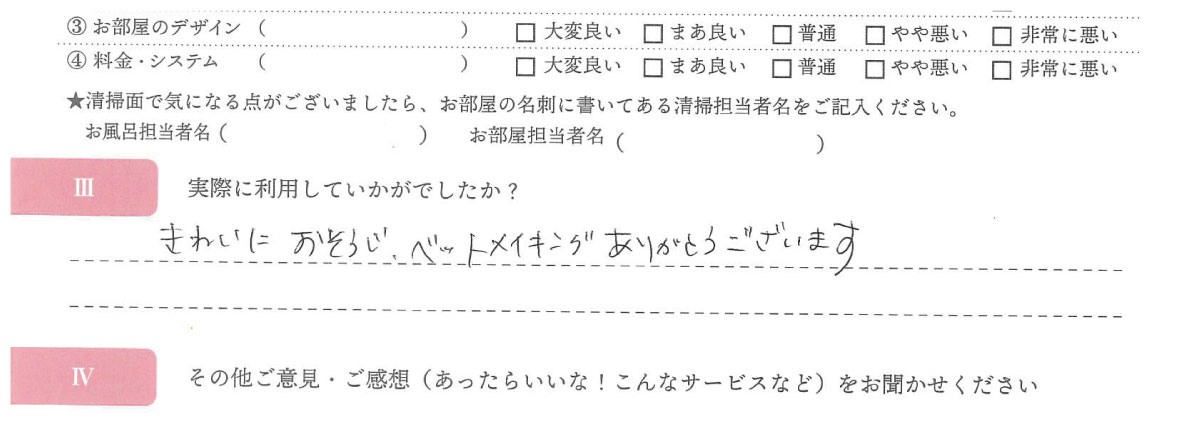 ③ お部屋のデザイン （　　　　　　　　　） □ 大変良い □ まあ良い □ 普通 □ やや悪い □ 非常に悪い
④ 料金・システム （　　　　　　　　　） □ 大変良い □ まあ良い □ 普通 □ やや悪い □ 非常に悪い
★清掃面で気になる点がございましたら、お部屋の名刺に書いてある清掃担当者名をご記入ください。
お風呂担当者名（　　　　　　　　　） お部屋担当者名（　　　　　　　　　）
Ⅲ 実際に利用していかがでしたか？
きれいに おそうじ、ベットメイキング ありがとうございます
Ⅳ その他ご意見・ご感想（あったらいいな！こんなサービスなど）をお聞かせください